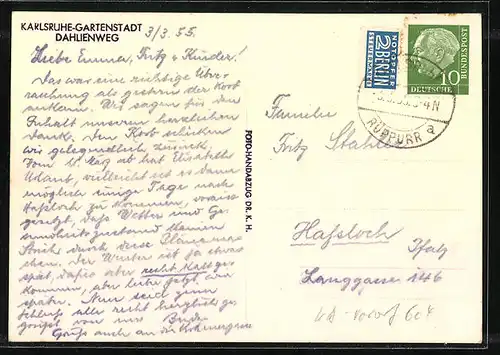 KARLSRUHE-GARTENSTADT
DAHLIENWEG
3/3. 55.
Liebe Emma, Fritz u Kinder!
Das war eine richtige Über-
raschung als gestern der Korb
ankam. Wir sagen für den
Inhalt unseren herzlichen
Dank. Den Korb schicken
wir gelegentlich zurück.
Vom März ab hat Elisabeth
Urlaub, vielleicht ist es dann
möglich einige Tage nach
Hafsloch zu kommen, voraus-
gesetzt, dafs Wetter und Ge-
sundheitszustand keinen
Strich durch diese Pläne machen.
Der Winter ist ja etwas
spät, dafür aber recht kalt ge-
kommen, aber lieber jetzt wie
später. Nun seid zum
Schlufs alle recht herzlich ge-
grüfst von uns
Grüfs auch an die
FOTO-HANDABZUG DR. K. H.
NOTOPFER
2 BERLIN
STEUERMARKE
DEUTSCHE
BUNDESPOST
10
RÜPPURR a
Familie
Fritz Stahler
Hafsloch
Pfalz
Langgasse 146